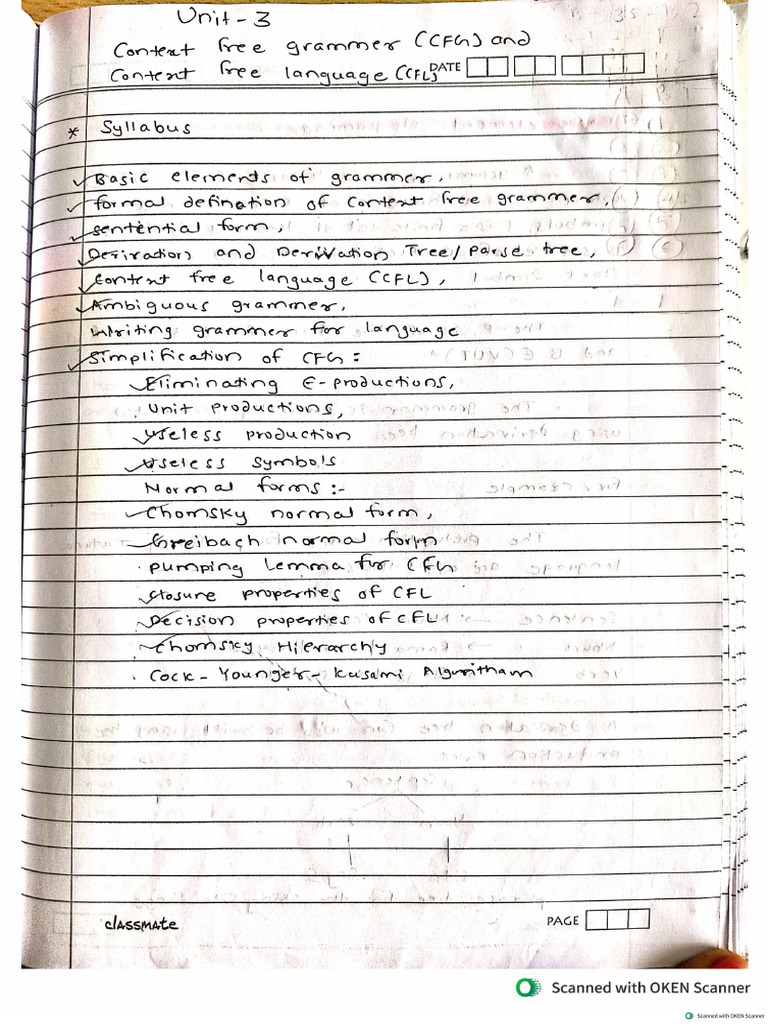 Unit-3
Context free grammer (CFG) and
Context free language (CFL) DATE
* Syllabus
✓ Basic elements of grammer,
✓ formal defination of Context free grammer,
✓ sentential form,
✓ Derivation and Derivation Tree/Parse tree,
✓ Context free language (CFL),
✓ Ambiguous grammer,
Writing grammer for language
✓ Simplification of CFG:
✓ Eliminating ε-productions,
· Unit productions,
✓ Useless production
✓ Useless symbols
Normal forms:-
✓ Chomsky normal form,
✓ Greibach normal form
· Pumping Lemma for CFG
✓ Closure properties of CFL
✓ Decision properties of CFL
✓ Chomsky Hierarchy
· Cock-Younger-Kasami Algoritham
classmate PAGE
Scanned with OKEN Scanner
Scanned with OKEN Scanner